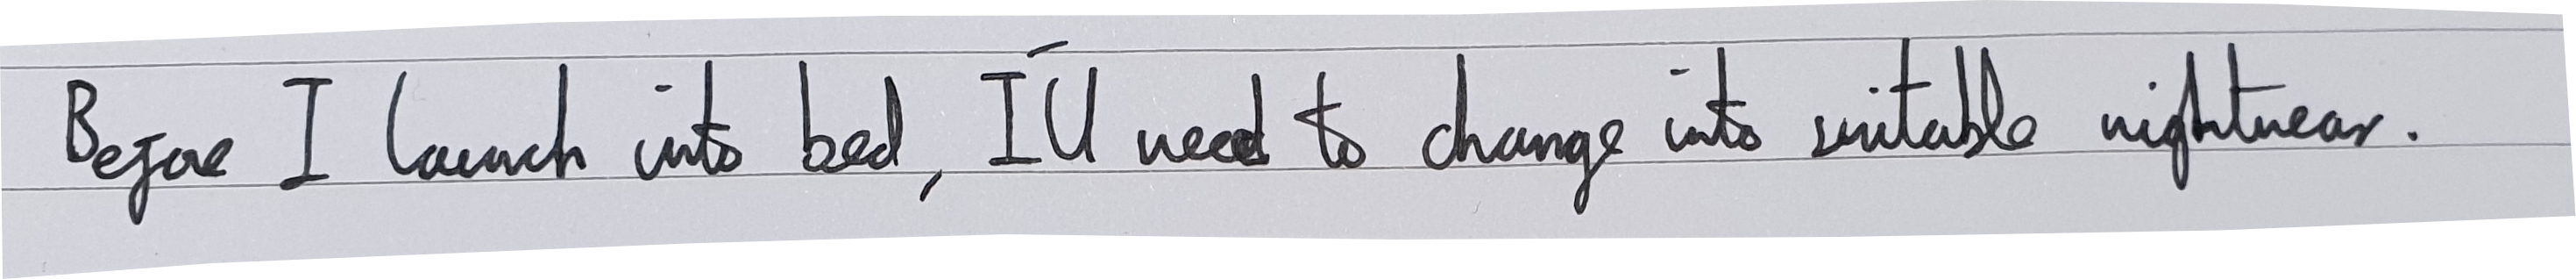 Before I launch into bed, I'll need to change into suitable nightwear.